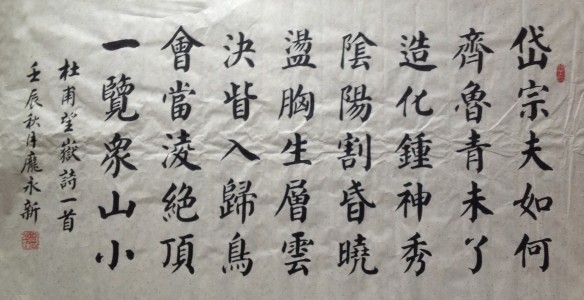 岱宗夫如何
齊魯青未了
造化鍾神秀
陰陽割昏曉
盪胸生層雲
決眥入歸鳥
會當淩絕頂
一覽眾山小
杜甫望嶽詩一首
壬辰秋月龐永新